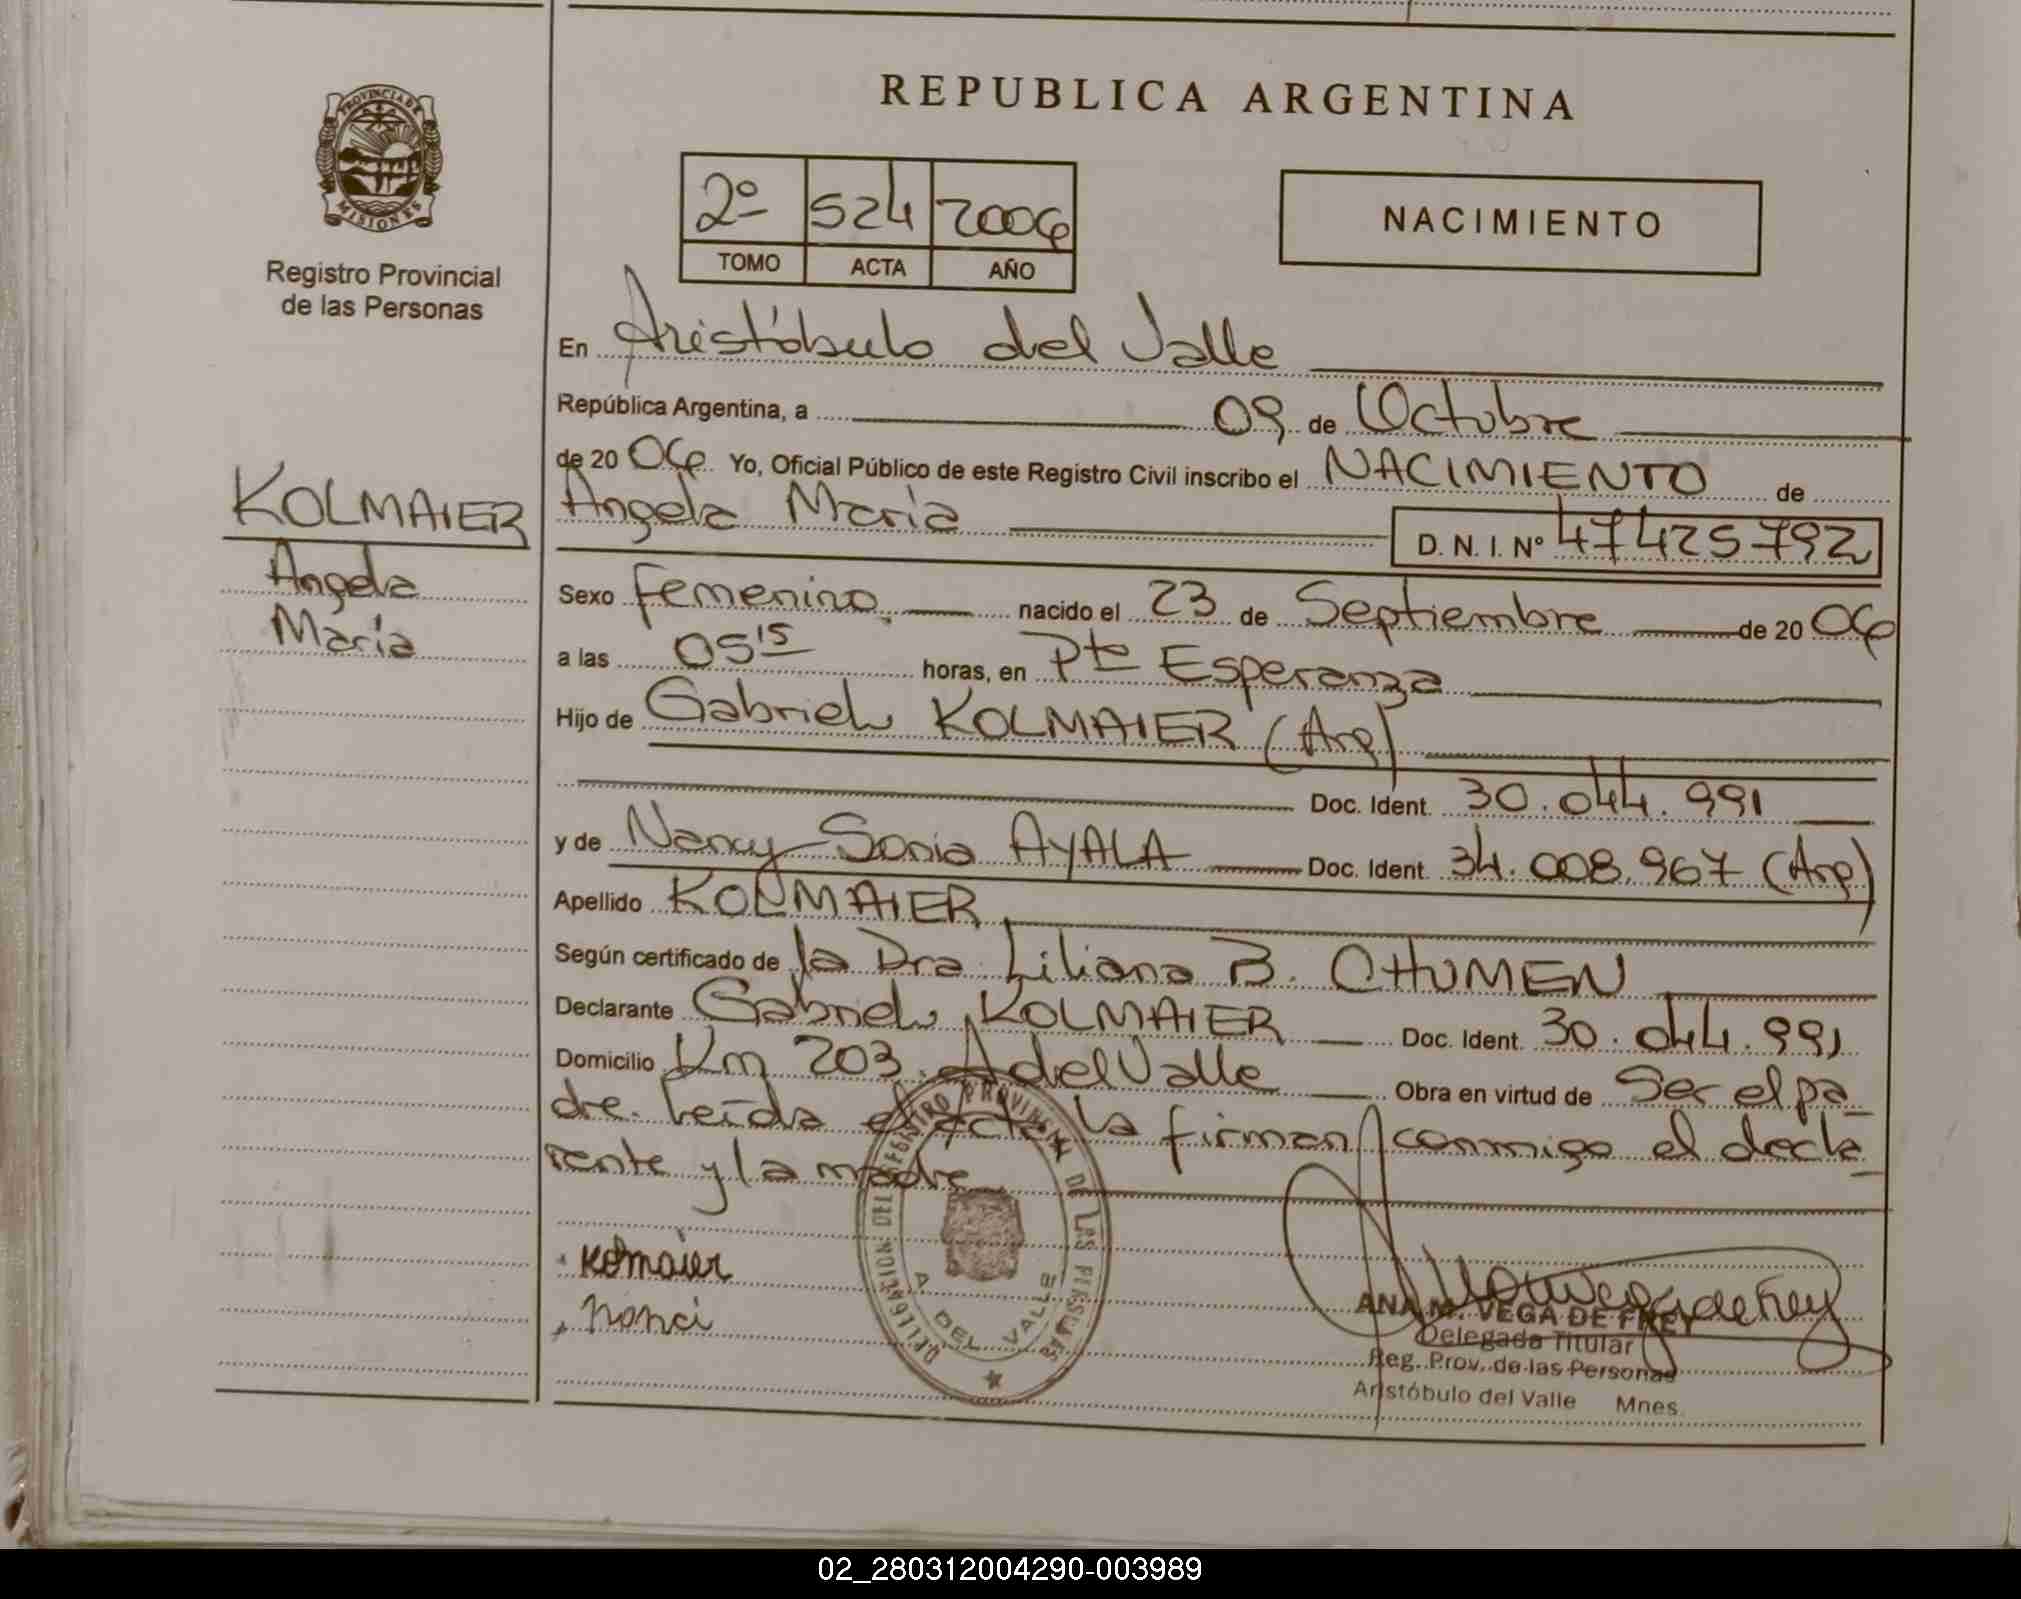 REPUBLICA ARGENTINA
PROVINCIA DE
MISIONES
Registro Provincial
de las Personas
2º 524 2006
TOMO ACTA AÑO
NACIMIENTO
En Aristóbulo del Valle
República Argentina, a 09 de Octubre
de 20 06 Yo, Oficial Público de este Registro Civil inscribo el NACIMIENTO de
KOLMAIER
Angela
Maria
Angela Maria
D. N. I. Nº 47425792
Sexo femenino nacido el 23 de Septiembre de 20 06
a las 05 15 horas, en Pto Esperanza
Hijo de Gabriel KOLMAIER (Arg)
Doc. Ident. 30.044.991
y de Nancy Sonia AYALA Doc. Ident. 34.008.967 (Arg)
Apellido KOLMAIER
Según certificado de la Dra Liliana B. CHUMEN
Declarante Gabriel KOLMAIER Doc. Ident. 30.044.991
Domicilio Km 203. A del Valle Obra en virtud de Ser el pa
dre. Leída el acta la firman conmigo el decla
rante y la madre
DELEGACION DEL REGISTRO PROVINCIAL DE LAS PERSONAS
A. DEL VALLE
Kolmaier
nanci
ANA M. VEGA DE FREY
Delegada Titular
Reg. Prov. de las Personas
Aristóbulo del Valle Mnes.
02_280312004290-003989